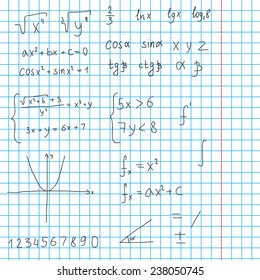 √x⁴ ∛y⁸ 2/3 lnx lgx log₂8
ax²+bx+c=0 cosα sinα x y z
cosx²+sinx²=1 tgβ ctgβ α β
{ (√(x²+b)+3)/y² = x²+y
3x+y=6x+7
{ 5x>6
7y<8
f' ∫
fₓ=x²
fₓ=ax²+c
y x
= /
±
1234567890
shutterstock.com · 238050745